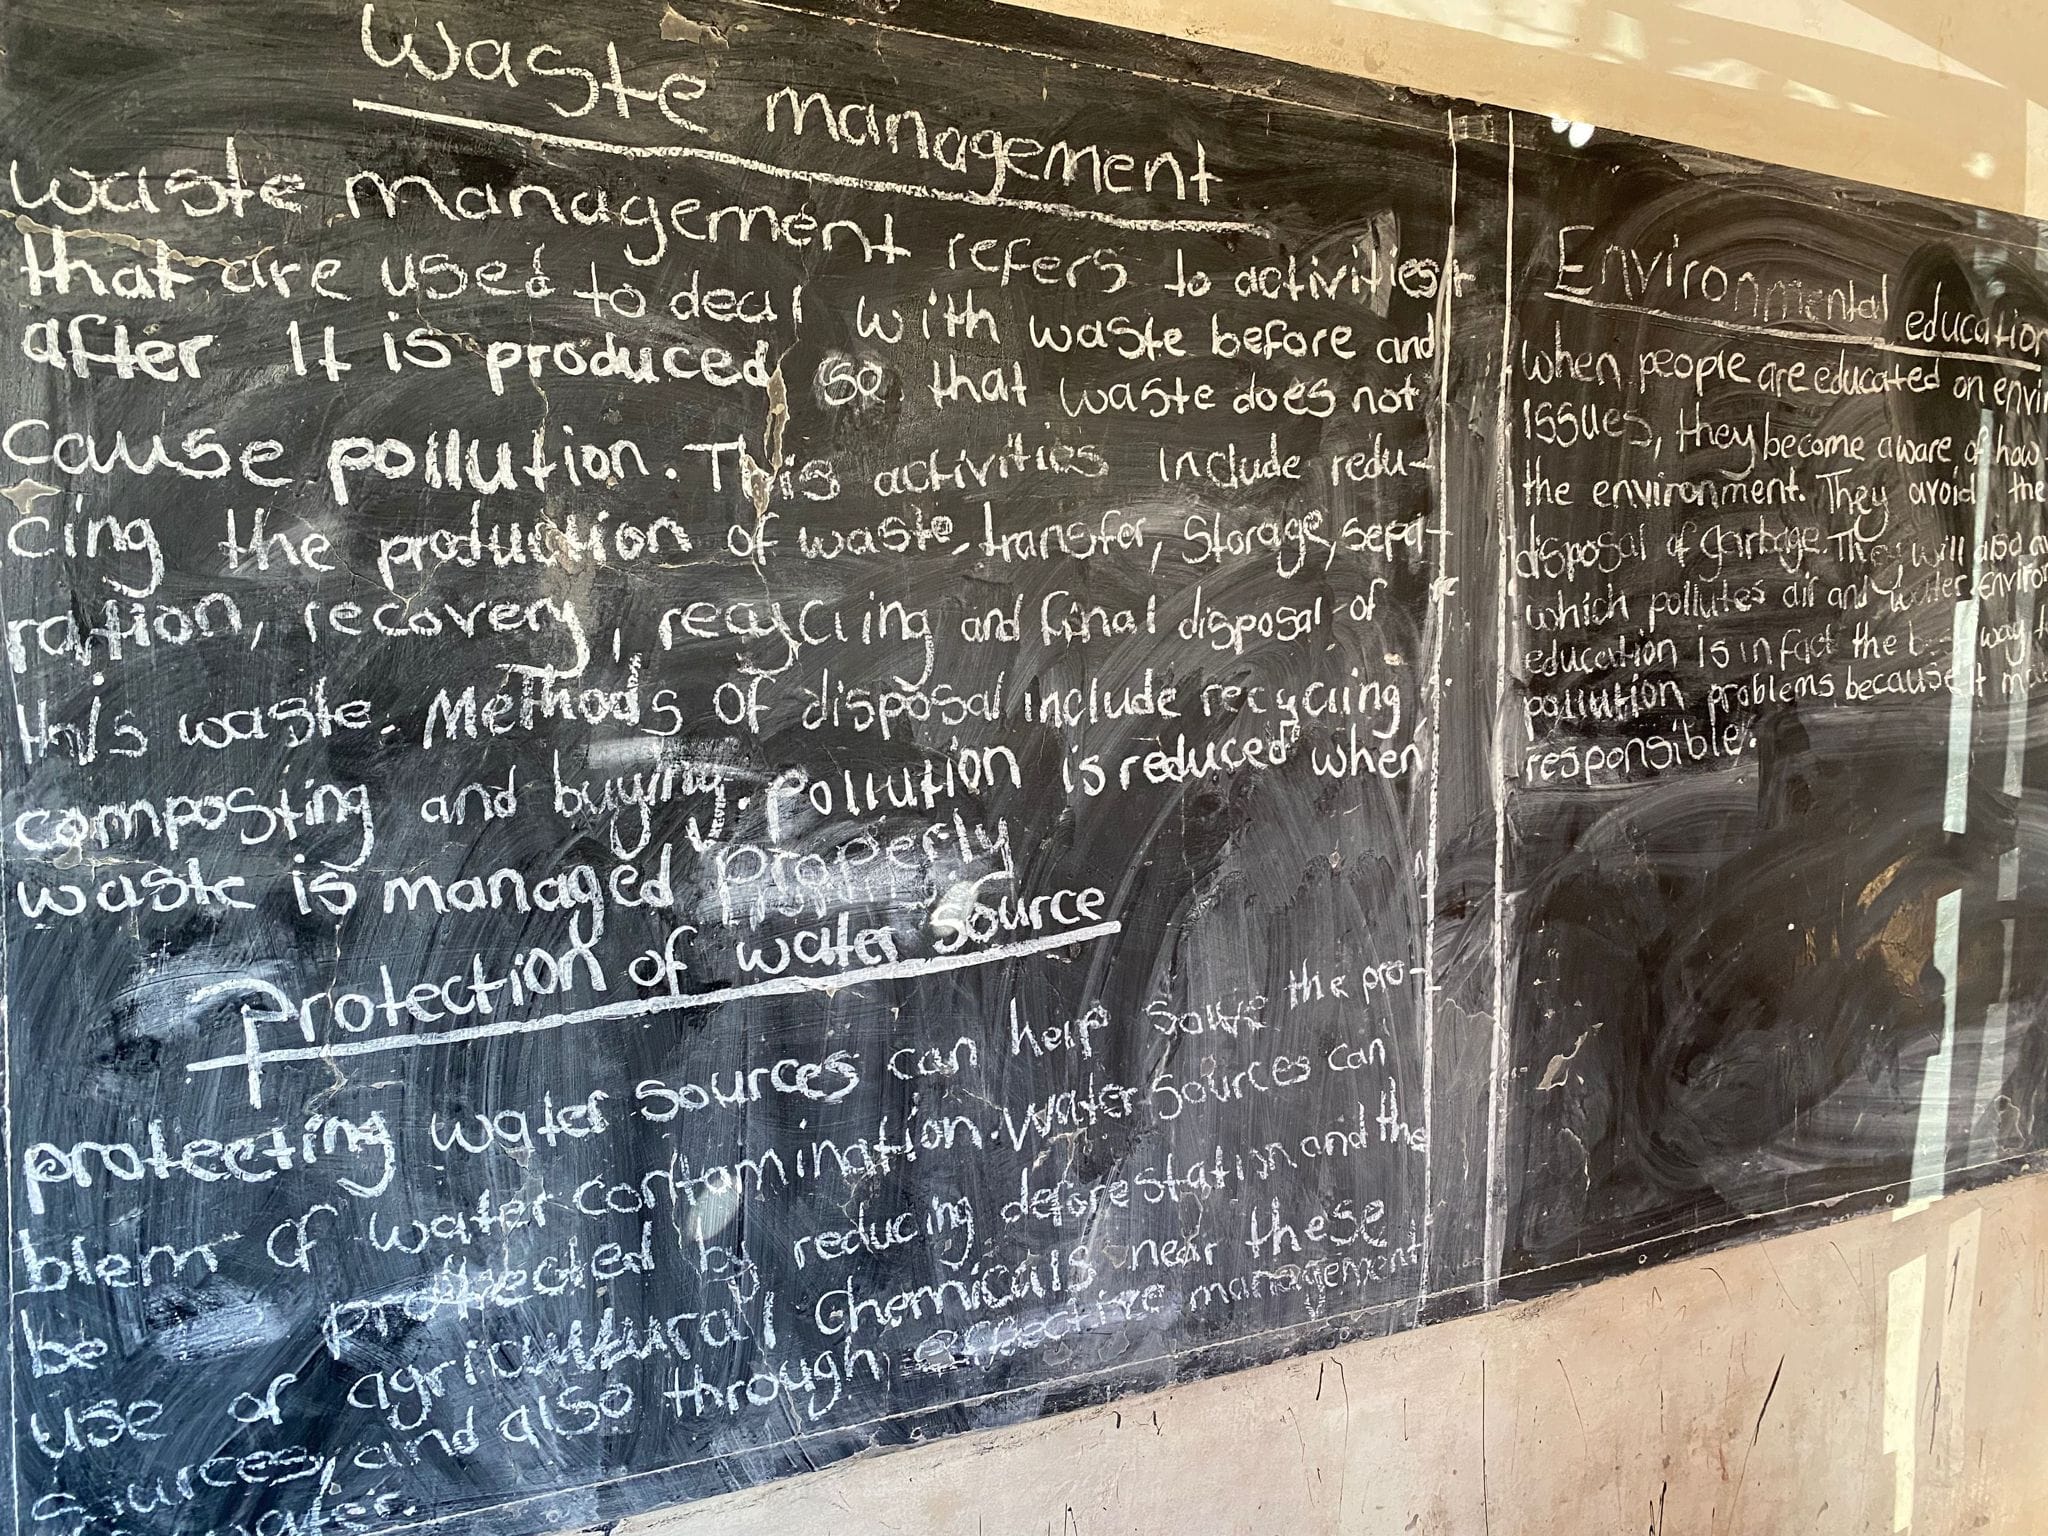 Waste management
waste management refers to activities
that are used to deal with waste before and
after It is produced so that waste does not
cause pollution. This activities include redu-
cing the production of waste, transfer, storage, sepa-
ration, recovery, recycling and final disposal of
this waste. Methods of disposal include recycling,
composting and burying. pollution is reduced when
waste is managed properly
Protection of water source
protecting water sources can help solve the pro-
blem of water contamination. Water sources can
be protected by reducing deforestation and the
use of agricultural Chemicals near these
sources, and also through effective management
water.
Environmental education
when people are educated on envi
Issues, they become aware of how
the environment. They avoid the
disposal of garbage. They will also
which pollutes air and water. Environ
education is in fact the best way t
pollution problems because it ma
responsible.